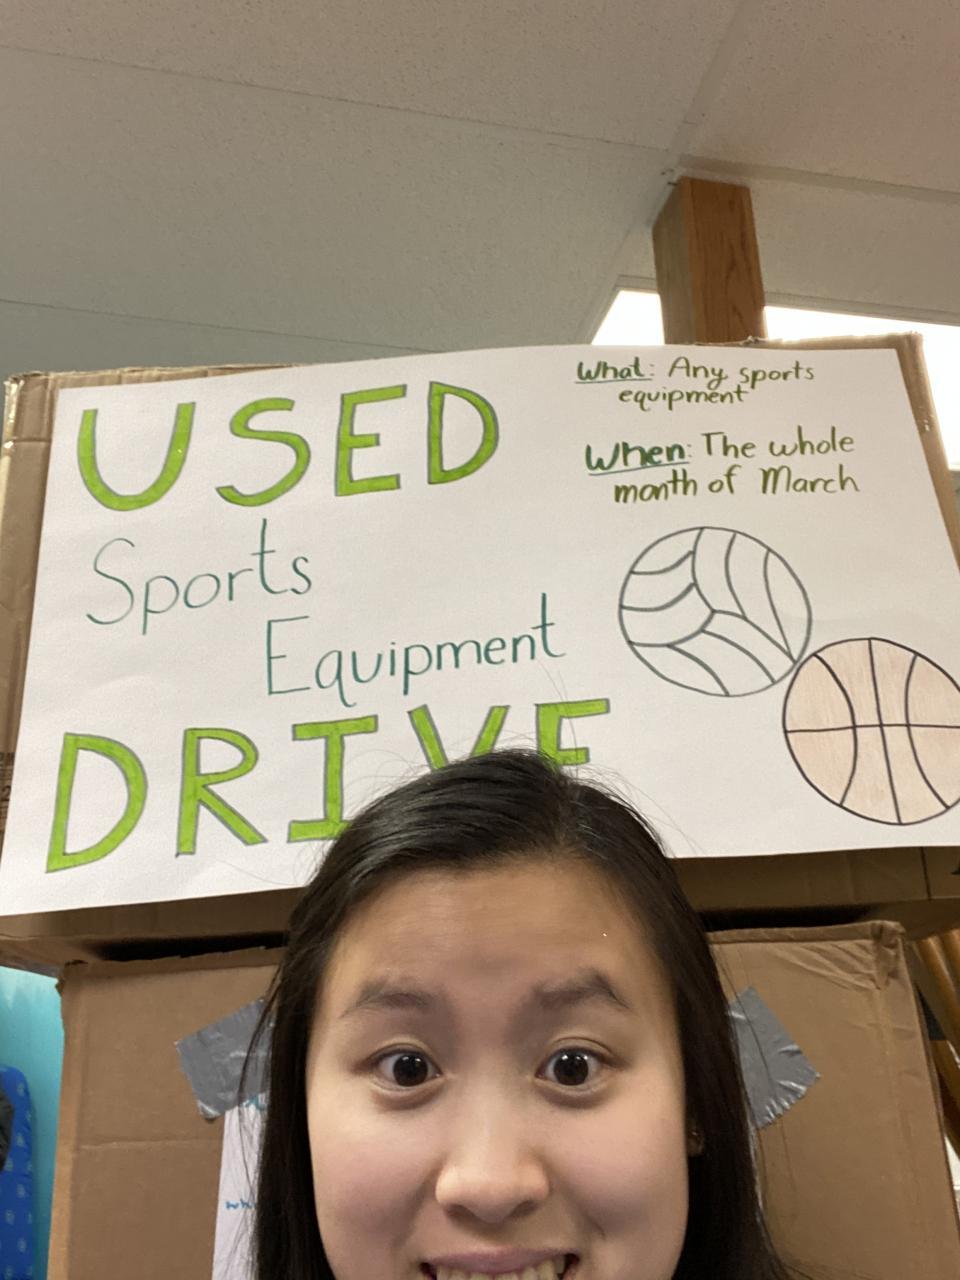 USED
Sports
Equipment
DRIVE
What: Any sports
equipment
When: The whole
month of March